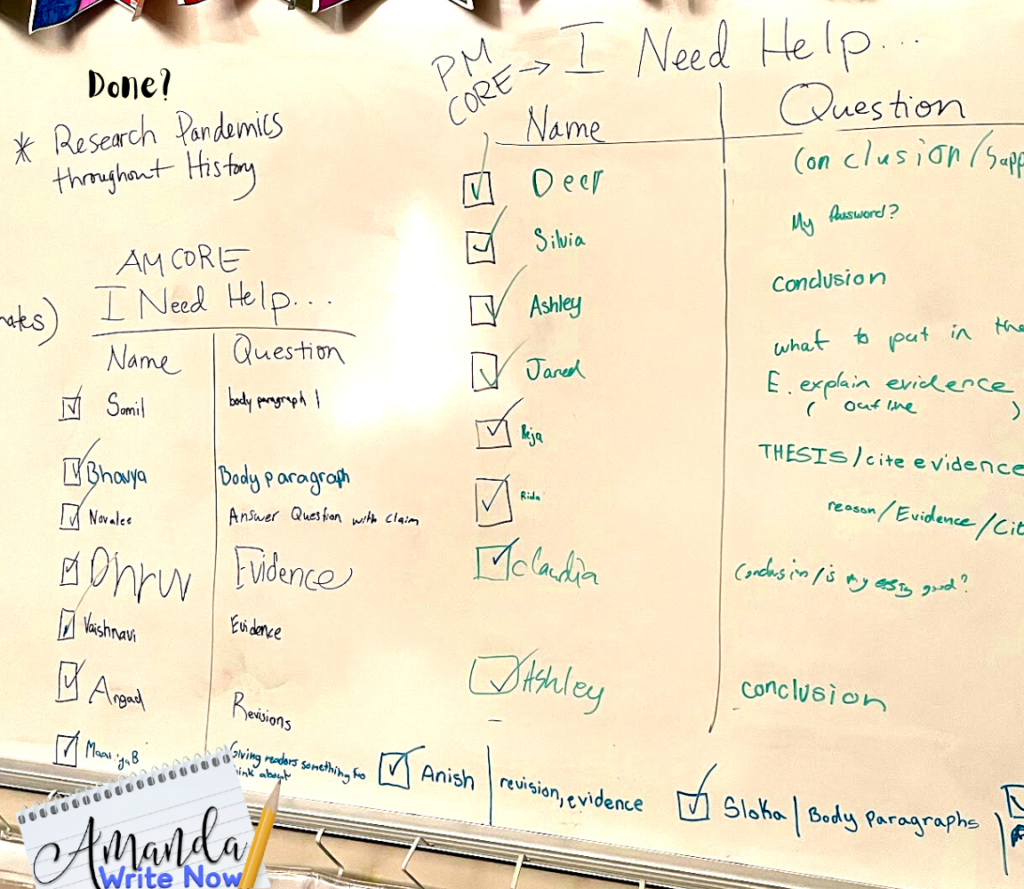 Done?
* Research Pandemics
throughout History
AM CORE
I Need Help...
Name Question
Somil body paragraph 1
Bhavya Body paragraph
Novalee Answer Question with claim
Dhruv Evidence
Vaishnavi Evidence
Angad Revisions
B Giving readers something to
think about
PM
CORE → I Need Help...
Name Question
Deer Conclusion/Supp
Silvia My Password?
Ashley conclusion
Jared what to put in the
E. explain evidence
( outline )
Reja THESIS/cite evidence
Rida reason/Evidence/Cit
Claudia Conclusion/is my essay good?
Ashley conclusion
Anish | revision, evidence
Sloka | Body paragraphs
Amanda
Write Now